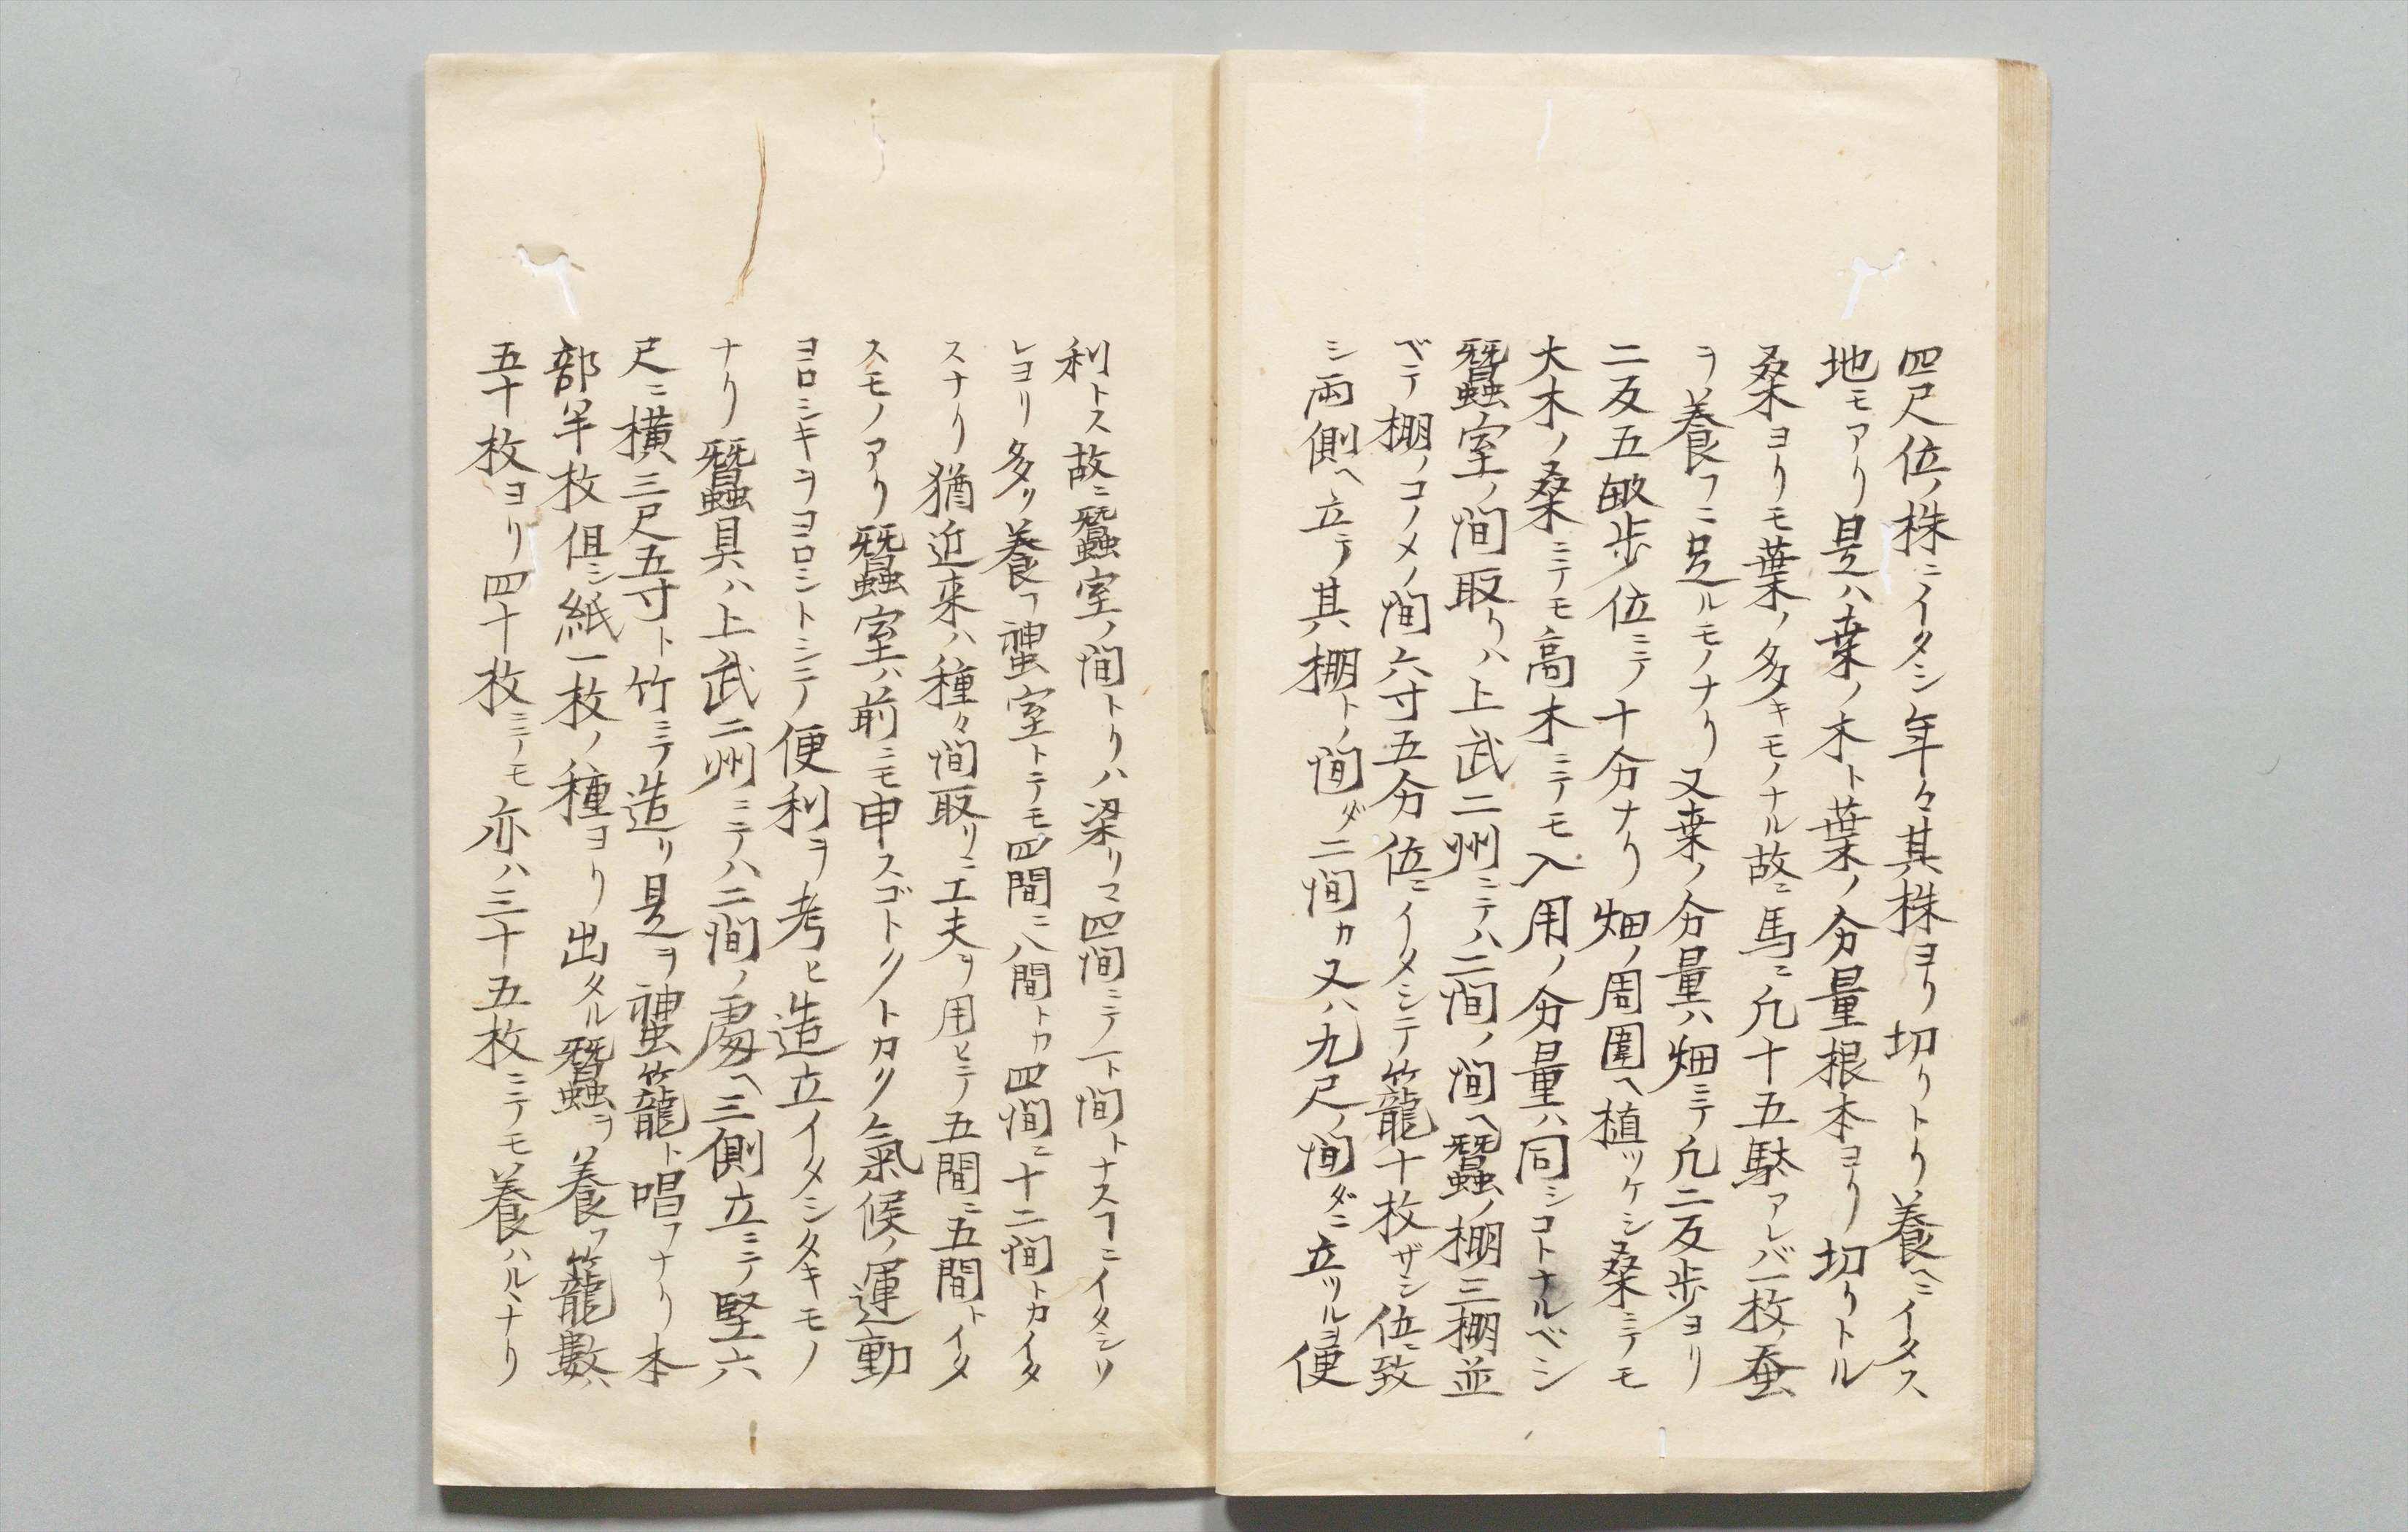 四尺位ノ株ニイタシ年々其株ヨリ切リトリ養ヘニイタス
地モアリ是ハ桑ノ木ト葉ノ分量根本ヨリ切リトル
桑ヨリモ葉ノ多キモノナル故ニ馬ニ凡十五駄アレバ一枚ノ蚕
ヲ養フニ足ルモノナリ又桑ノ分量ハ畑ニテ凡二反歩ヨリ
二反五畝歩位ニテ十分ナリ畑ノ周圍ヘ植ツケシ桑ニテモ
大木ノ桑ニテモ高木ニテモ入用ノ分量ハ同シコトナルベシ
蠶室ノ間取リハ上武二州ニテハ二間ノ間ヘ蠶ノ棚三棚並
ベテ棚ノコノメノ間六寸五分位ニイタシテ籠十枚ザシ位ニ致
シ両側ヘ立テ其棚トノ間ダ二間カ又ハ九尺ノ間ダニ立ツルヲ便
利トス故ニ蠶室ノ間トリハ梁リマ四間ニテ一ト間トナスヿニイタシソ
レヨリ多ク養フ蠶室トテモ四間ニ八間トカ四間ニ十二間トカイタ
スナリ猶近来ハ種々間取リニ工夫ヲ用ヒテ五間ニ五間トイタ
スモノアリ蠶室ハ前ニモ申スゴトクトカク氣候ノ運動
ヨロシキヲヨロシトシテ便利ヲ考ヒ造立イタシタキモノ
ナリ蠶具ハ上武二州ニテハ二間ノ處ヘ三側立ニテ堅六
尺ニ横三尺五寸ト竹ニテ造リ是ヲ蠶籠ト唱フナリ本
部半枚但シ紙一枚ノ種ヨリ出タル蠶ヲ養フ籠數ハ
五十枚ヨリ四十枚ニテモ亦ハ三十五枚ニテモ養ハルヽナリ